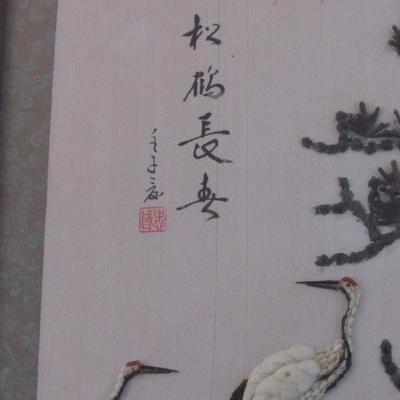 松鶴長春
壬子夏